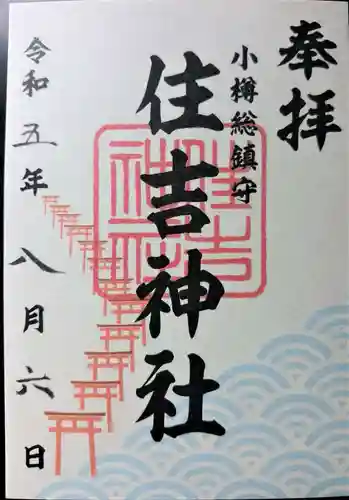 奉拝
小樽総鎮守
住吉神社
令和五年八月六日
住吉
神社